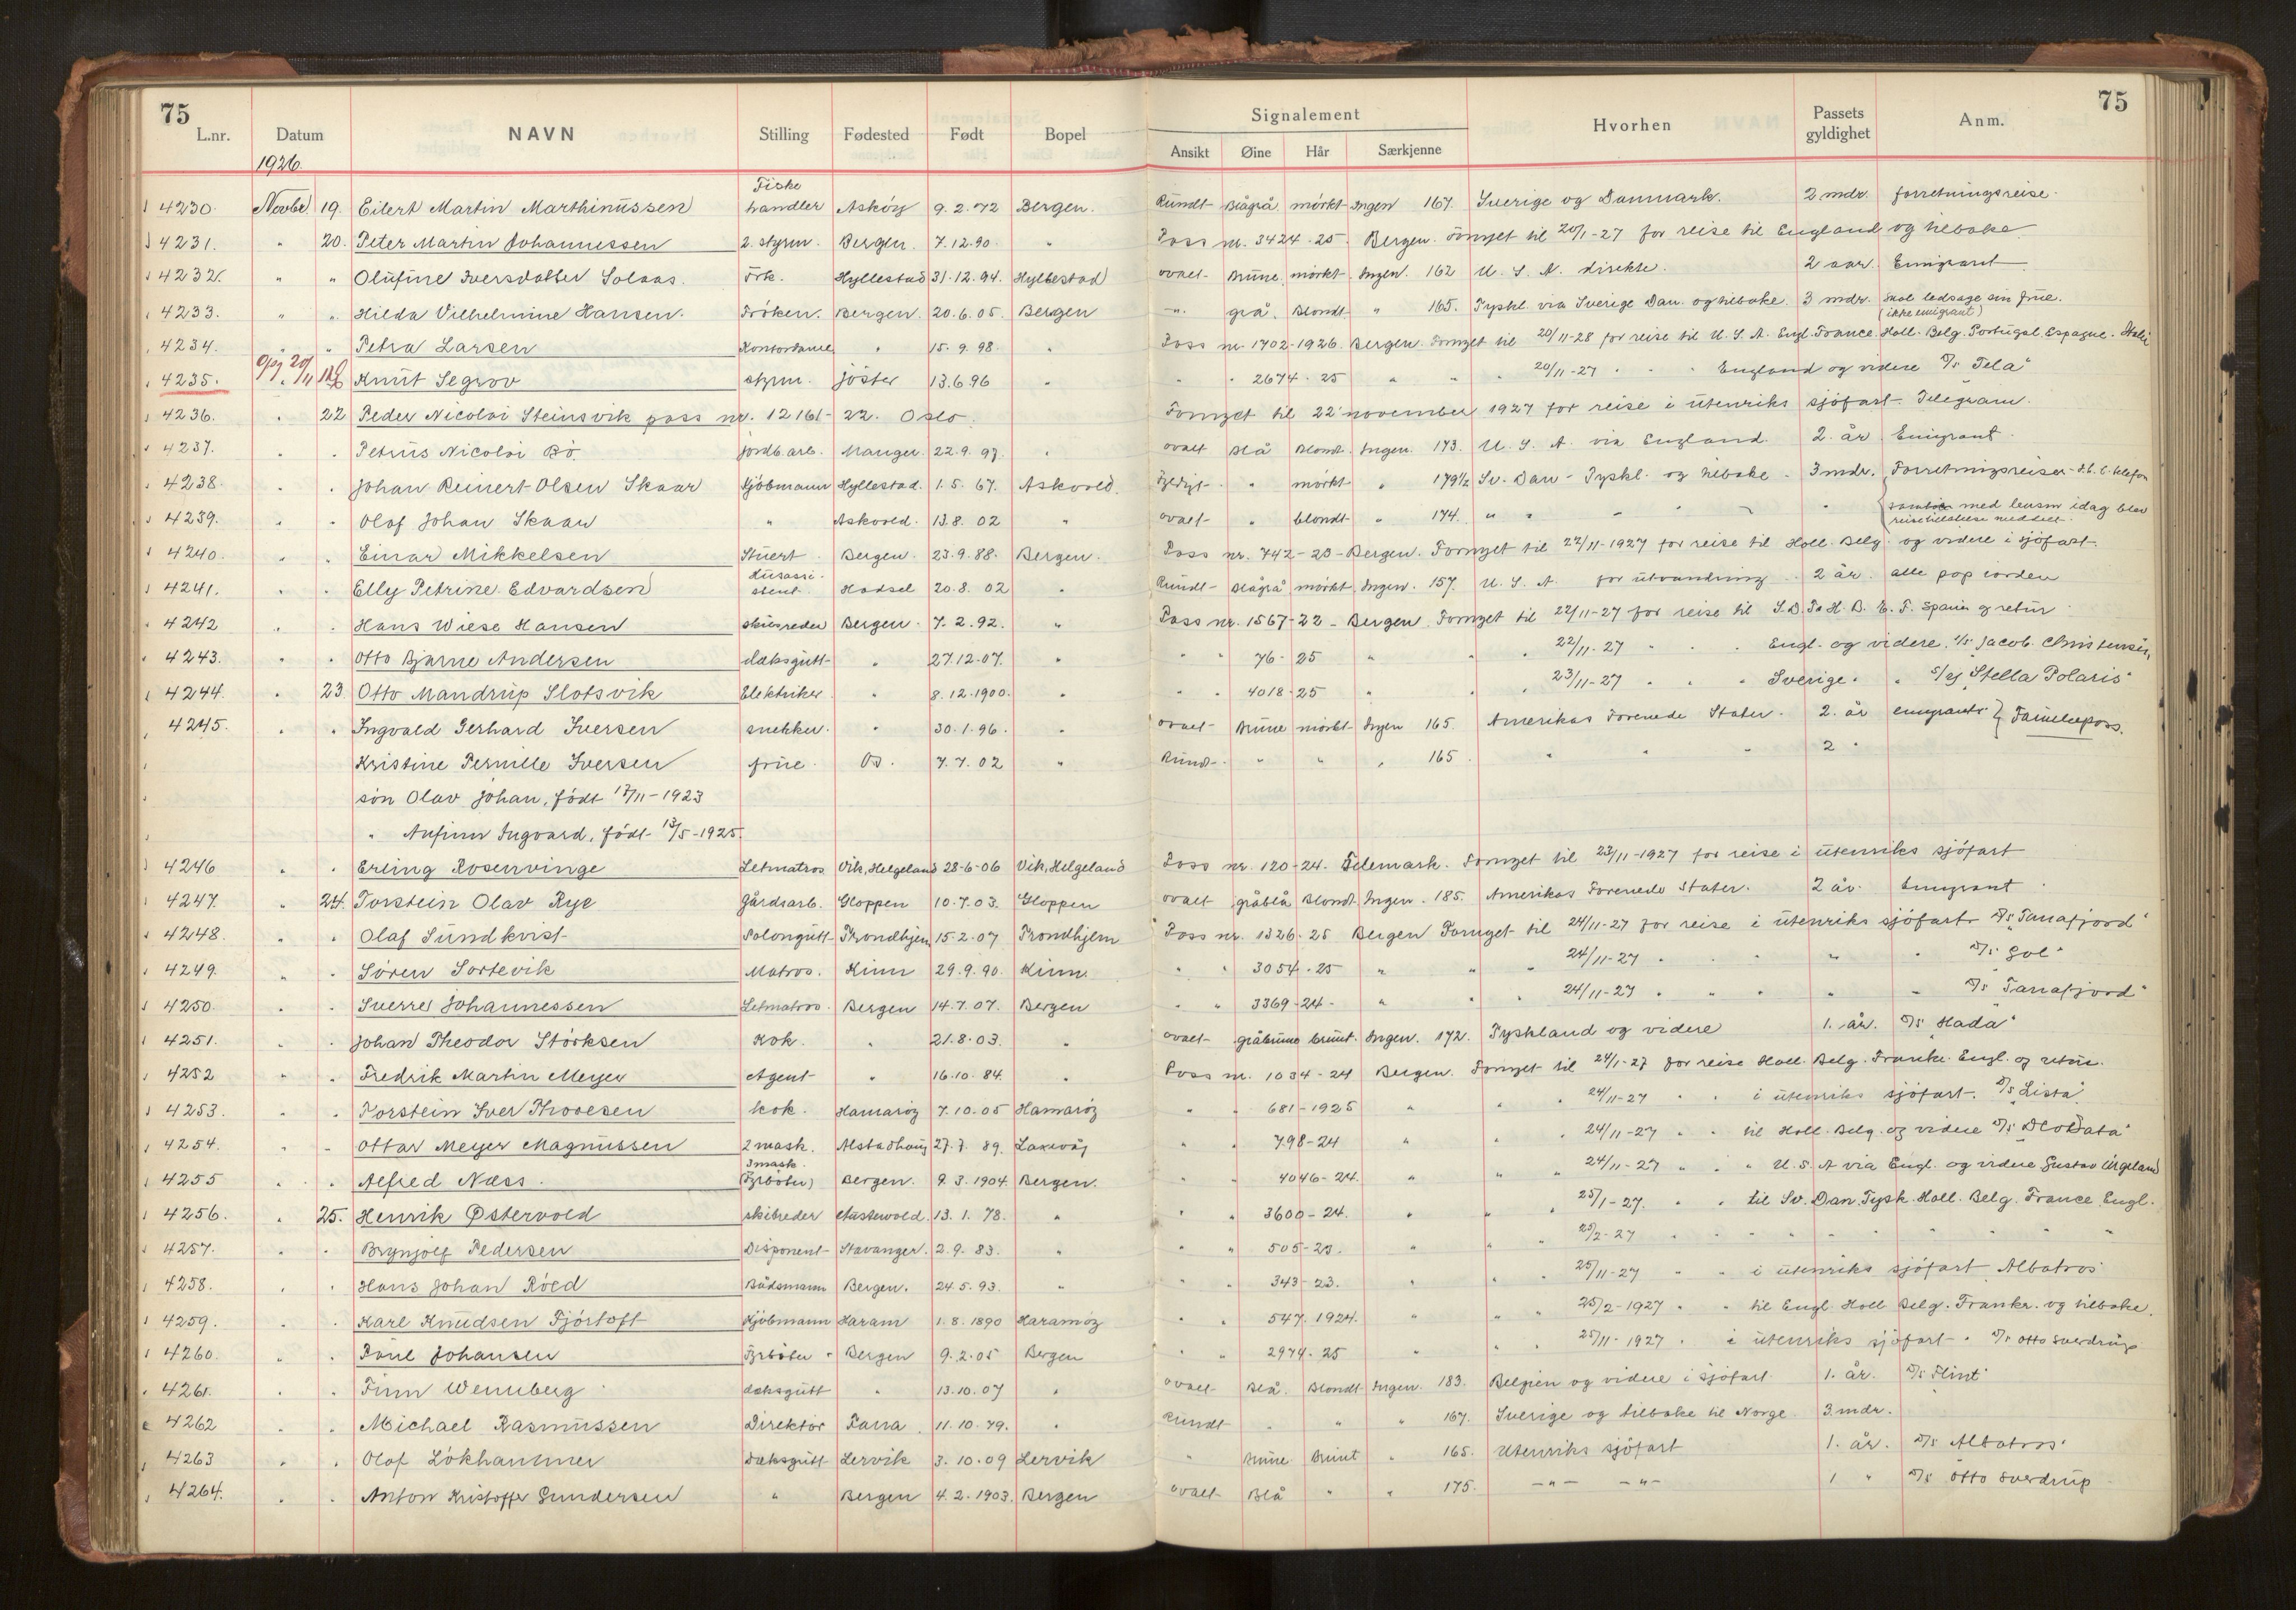 75
L.nr. Datum NAVN Stilling Fødested Født Bopel
Signalement Hvorhen Passets gyldighet Anm. 75
Ansikt Øine Hår Særkjenne
1926.
4230. Novbr. 19. Eilert Martin Marthinussen Fiskehandler Askøy 9.2.72 Bergen. Rundt Blågrå mørkt Ingen 167. Sverige og Danmark. 2 mdr. forretningsreise.
4231. " 20. Peter Martin Johannessen 2. styrm. Bergen. 7.12.90. " Pass nr. 3424-25. Bergen. Fornyet til 20/1-27 for reise til England og tilbake
4232. " " Olufine Iversdatter Solaas. Frk. Hyllestad 31.12.94. Hyllestad ovalt Brune mørkt Ingen. 162 U.S.A. direkte. 2 aar. Emigrant
4233. " " Hilda Vilhelmine Hansen. Frøken. Bergen. 20.6.05. Bergen -"- grå. Blondt " 165. Tyskl. via Sverige Dan. og tilbake. 3 mdr. skal ledsage sin frue. (ikke emigrant)
4234. " " Petra Larsen Kontordame " 15.9.98. " Pass nr. 1702-1926. Bergen. Fornyet til 20/11-28 for reise til U.S.A. Engl. France. Holl. Belg. Portugal. Espagne. Itali
4235. " Knut Segrov styrm. Jöster 13.6.96 " " " 2674-25 " " " 20/11-27 " " " England og videre D/s "Tela"
4236. " 22 Peder Nicolai Steinsvik pass nr. 12161-22. Oslo. Fornyet til 22 november 1927 for reise i utenriks sjøfart. Telegram.
4237. " " Petrus Nicolai Bö. jordb.arb. Manger. 22.9.97. " ovalt Blå Blondt. Ingen. 173. U.S.A. via England. 2 år Emigrant.
4238. " " Johan Reinert Olsen Skaar Kjöbmann Hyllestad. 1.5.67. Askvold. " mørkt " 179 1/2 Sv. Dan - Tyskl. og tilbake. 3 mdr. Forretningsreiser telefon
4239. " " Olaf Johan Skaar " Askvold. 13.8.02 " ovalt " blondt " 174. " " " " " med lensm idag blev reisetillatelse meddelt.
4240. " " Einar Mikkelsen Stuert Bergen. 23.9.88. Bergen. Pass nr. 742-23-Bergen. Fornyet til 22/11-1927 for reise til Holl. Belg. og videre i sjöfart.
4241. " " Elly Petrine Edvardsen Husassistent. Hadsel 20.8.02 " Rundt Blågrå mørkt Ingen. 157. U.S.A. for utvandring. 2 år.
4242 " " Hans Wiese Hansen skibsreder Bergen. 7.2.92. " Pass nr. 1567-22-Bergen. Fornyet til 22/11-27 for reise til S.D. T. H. B. E. F. Spanien og retur
4243. " " Otto Bjarne Andersen dæksgutt " 27.12.07. " " " 76-25 " " " 22/11-27 " " " Engl. og videre. D/s Jacob Christensen,
4244. " 23. Otto Mandrup Slotsvik Elektriker " 8.12.1900. " " " 4018-25 " " " 23/11-27 " " " Sverige. " "Stella Polaris"
4245. " " Ingvald Gerhard Iversen snekker. " 30.1.96. " ovalt Brune mørkt Ingen 165. Amerikas Forenede Stater. 2 år emigrants } Familiepass.
Kristine Pernille Iversen frue. Os. 7.7.02 " Rund " " " 165. " " " 2 "
sön Olav Johan, födt 17/11-1923
" Anfinn Ingvard, födt 13/5-1925.
4246 " " Erling Rosenvinge Letmatros Vik, Helgeland 28-6-06 Vik, Helgeland Pass nr. 120-24. Telemark. Fornyet til 23/11-1927 for reise i utenriks sjöfart
4247. " 24. Torstein Olav Rye Gårdsarb. Gloppen 10.7.03. Gloppen ovalt gråblå Blondt Ingen. 185. Amerikas Forenede Stater. 2 år. Emigrant
4248. " " Olaf Sundkvist Salongutt Trondhjem 15.2.07 Trondhjem Pass nr. 1326-25 Bergen Fornyet til 24/11-27 for reise i utenriks sjöfart D/s "Tanafjord"
4249. " " Sören Sortevik Matros. Kinn 29.9.90. Kinn. " " 3054-25 " " " 24/11-27 " " " " D/s "Sol"
4250. " " Sverre Johannessen Letmatros Bergen 14.7.07. Bergen " " 3369-24- " " " 24/11-27 " " " " D/s "Tanafjord"
4251. " " Johan Theodor Störksen Kok. " 21.8.03. " ovalt gråbrune brunt. Ingen. 172. Tyskland og videre 1. år. D/s "Hada"
4252 " " Fredrik Martin Meyer Agent " 16.10.84. " Pass nr. 1034-24 Bergen. Fornyet til 24/1-27 for reise Holl. Belg. Frankr. Engl. og retur.
4253. " " Torstein Iver Thovesen kok. Hamaröy 7.10.05 Hamaröy " " 681-1925 " " " 24/11-27 " " i utenriks sjöfart. D/s "Lista"
4254. " " Ottar Meyer Magnussen 2 mask. Alstadhaug 27.7.89. Laxevåg " " 798-24 " " " 24/11-27 " " til Holl. Belg. og videre D/s
4255 " " Alfred Næss. 3 mask. (Fyrböter) Bergen. 9.3.1904. Bergen. " " 4046-24. " " " 24/11-27 " " " U.S.A via Engl. og videre Gustav Vigeland
4256. " 25. Henrik Østervold skibreder Austevold. 13.1.78. " " " 3600-24. " " " 25/1-27. " " til Sv. Dan. Tysk. Holl. Belg. France. Engl.
4257. " " Brynjolf Pedersen Disponent Stavanger. 2.9.83. " " " 505-23. " " " 25/2-27 " " " " " " " "
4258. " " Hans Johan Röed Bådsmann Bergen. 24.5.93. " " " 343-23. " " " 25/11-27 " " i utenriks sjöfart Albatros
4259. " " Karl Knudsen Fjörtoft Kjöbmann Haram 1.8.1890 Haramöy " " 547.1924. " " " 25/2-1927 " " til Engl. Holl Belg. Frankr. og tilbake.
4260. " " Paul Johansen Fyrböter Bergen 9.2.05 Bergen " " 2974-25 " " " 25/11-1927 " i utenriks sjöfart. D/s Otto Sverdrup
4261. " " Finn Wennberg dæksgutt " 13.10.07 " ovalt Blå. Blondt Ingen. 183. Belgien og videre i sjöfart. 1. år. D/s "Flint"
4262 " " Michael Rasmussen Direktör Fana. 11.10.79. " Rundt " " " 167. Sverige og tilbake til Norge. 3. mdr.
4263 " " Olaf Lökhammer Dæksgutt Lervik 3.10.09 Lervik " Brune Brunt " 165. Utenriks sjöfart 1. år. D/s Albatros
4264. " " Anton Kristoffer Gundersen " Bergen 4.2.1903. Bergen ovalt Blå " " 175. -"- -"- 1 " D/s Otto Sverdrup